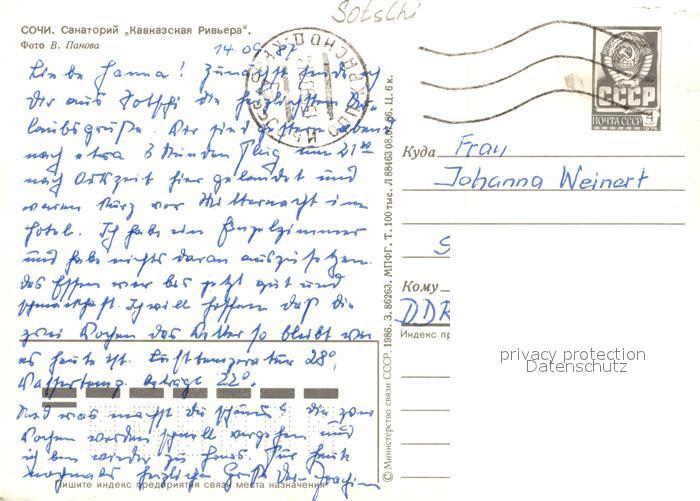 Sotschi
СОЧИ. Санаторий „Кавказская Ривьера“.
Фото В. Панова
14.09.87
Liebe Hanna! Zunächst sende ich
Dir aus Sotschi die herzlichsten Ur-
laubsgrüße. Wir sind gestern abend
nach etwa 3 Stunden Flug um 21⁰⁰
nach Ortszeit hier gelandet und
waren kurz vor Mitternacht im
Hotel. Ich habe ein Einzelzimmer
und habe nichts daran auszusetzen.
Das Essen war bis jetzt gut und
schmackhaft. Ich will hoffen daß die
zwei Wochen das Wetter so bleibt wie
es heute ist. Lufttemperatur 28°,
Wassertemp. beträgt 22°.
Und was machst du schönes? Die zwei
Wochen werden schnell vergehen und
ich bin wieder zu Haus. Für heute
nochmals herzliche Grüße Dein Joachim
Пишите индекс предприятия связи места назначения
© Министерство связи СССР. 1986. З. 86263. МПФГ. Т. 100 тыс. Л 88463 08.07.86. Ц. 6 к.
СССР
ПОЧТА СССР
4
Куда Frau
Johanna Weinert
S
Кому
DDR
Индекс пр
privacy protection
Datenschutz